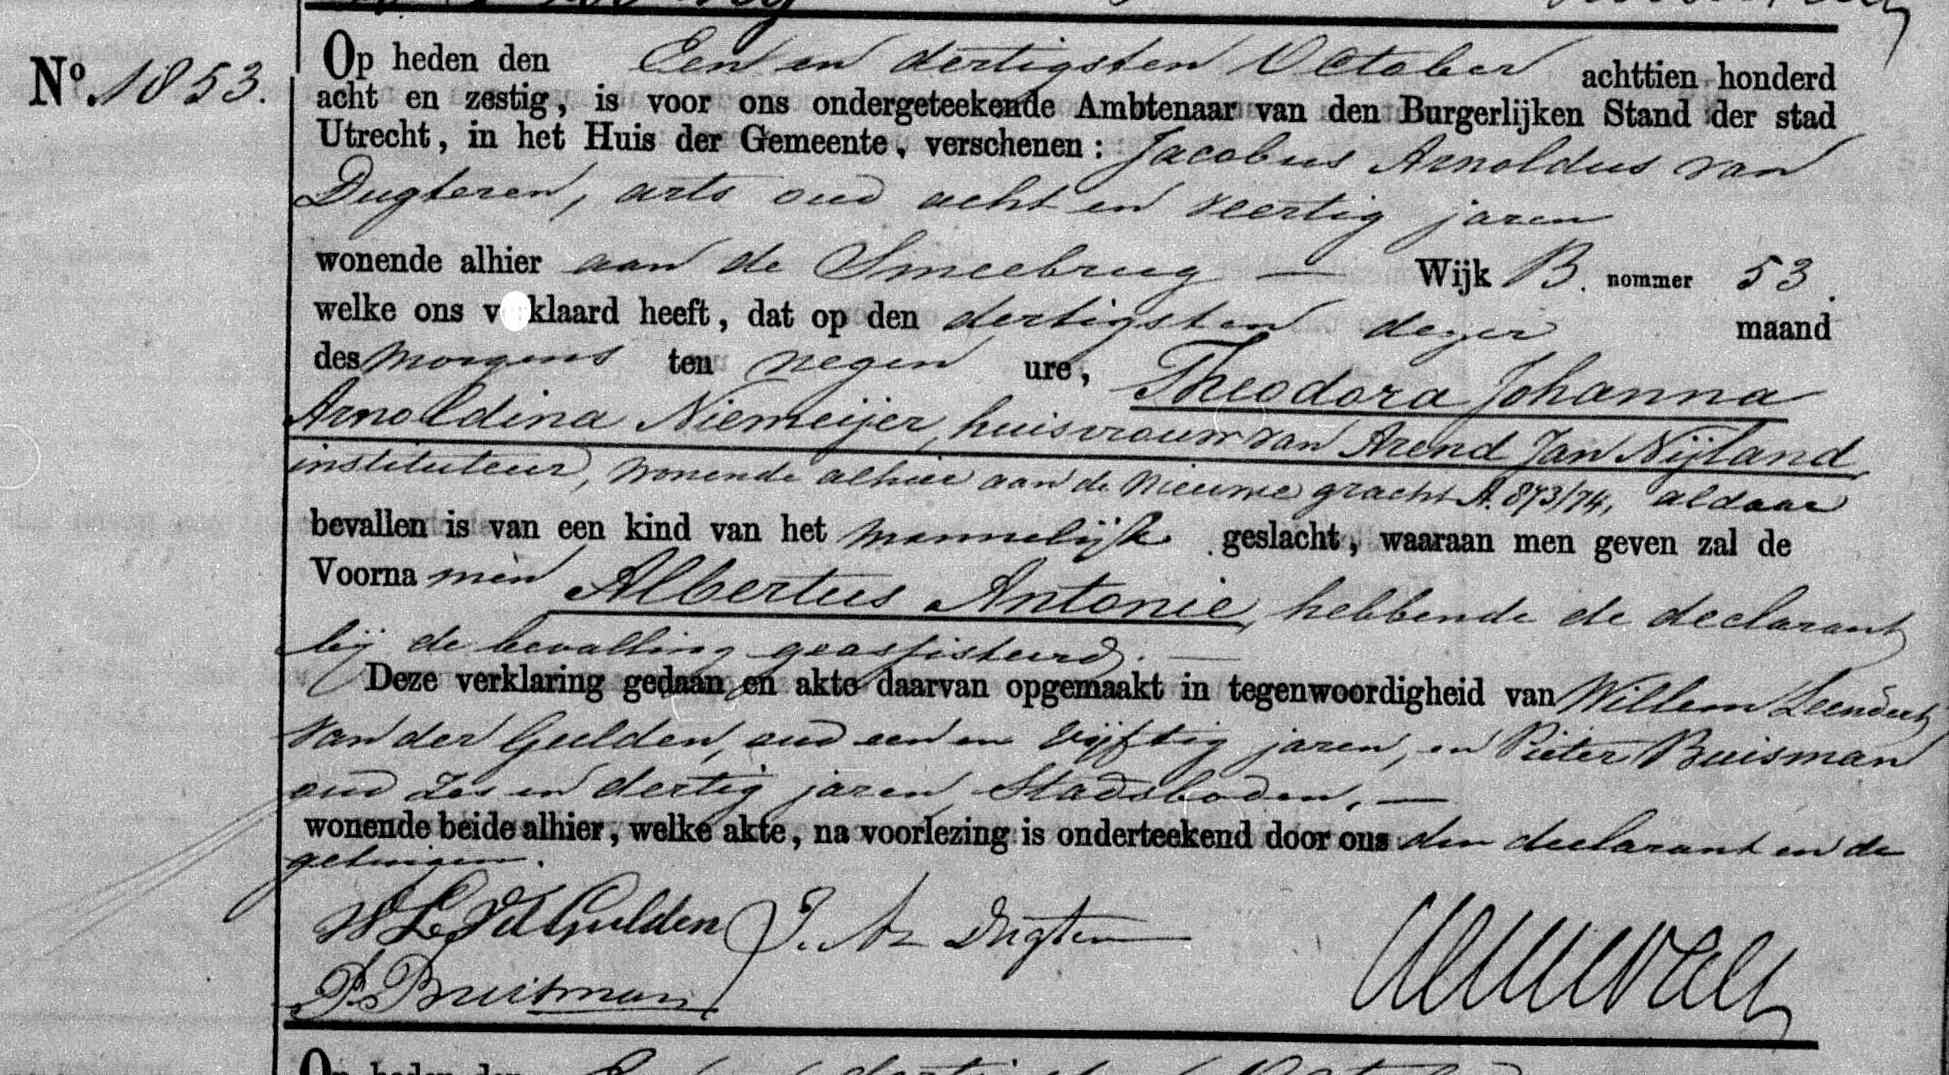 Nº. 1853.
Op heden den Een en dertigsten October achttien honderd
acht en zestig, is voor ons ondergeteekende Ambtenaar van den Burgerlijken Stand der stad
Utrecht, in het Huis der Gemeente, verschenen: Jacobus Arnoldus van
Dugteren, arts oud acht en veertig jaren
wonende alhier aan de Smeebrug — Wijk B. nommer 53.
welke ons verklaard heeft, dat op den dertigsten dezer maand
des morgens ten negen ure, Theodora Johanna
Arnoldina Niemeijer, huisvrouw van Arend Jan Nijland
instituteur, wonende alhier aan de Nieuwe gracht A. 873/74, aldaar
bevallen is van een kind van het mannelijk geslacht, waaraan men geven zal de
Voornamen Albertus Antonie, hebbende de declarant
bij de bevalling geassisteerd. —
Deze verklaring gedaan en akte daarvan opgemaakt in tegenwoordigheid van Willem Leendert
van der Gulden, oud een en vijftig jaren, en Pieter Buisman
oud zes en dertig jaren, Stadsboden, —
wonende beide alhier, welke akte, na voorlezing is onderteekend door ons den declarant en de
getuigen.
W L Vd Gulden J. A. v Dugteren
P. Buisman
Op heden den